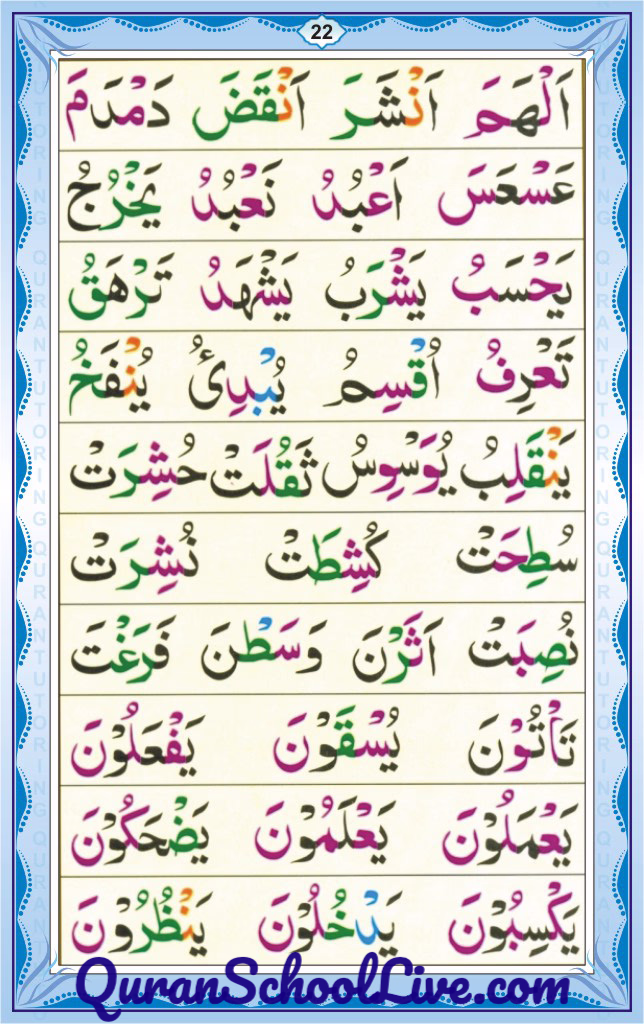 22
اَلْهَمَ اَنْشَرَ اَنْقَضَ دَمْدَمَ
عَسْعَسَ اَعْبُدُ نَعْبُدُ يَخْرُجُ
يَحْسَبُ يَشْرَبُ يَشْهَدُ تَرْهَقُ
تَعْرِفُ اُقْسِمُ يُبْدِئُ يُنْفَخُ
يَنْقَلِبُ يُوَسْوِسُ ثَقُلَتْ حُشِرَتْ
سُطِحَتْ كُشِطَتْ نُشِرَتْ
نُصِبَتْ اَثَرْنَ وَسَطْنَ فَرَغْتَ
تَأْتُوْنَ يُسْقَوْنَ يَفْعَلُوْنَ
يَعْمَلُوْنَ يَعْلَمُوْنَ يَضْحَكُوْنَ
يَكْسِبُوْنَ يَدْخُلُوْنَ يَنْظُرُوْنَ
QuranSchoolLive.com
QURAN TUTORING QURAN TUTORING